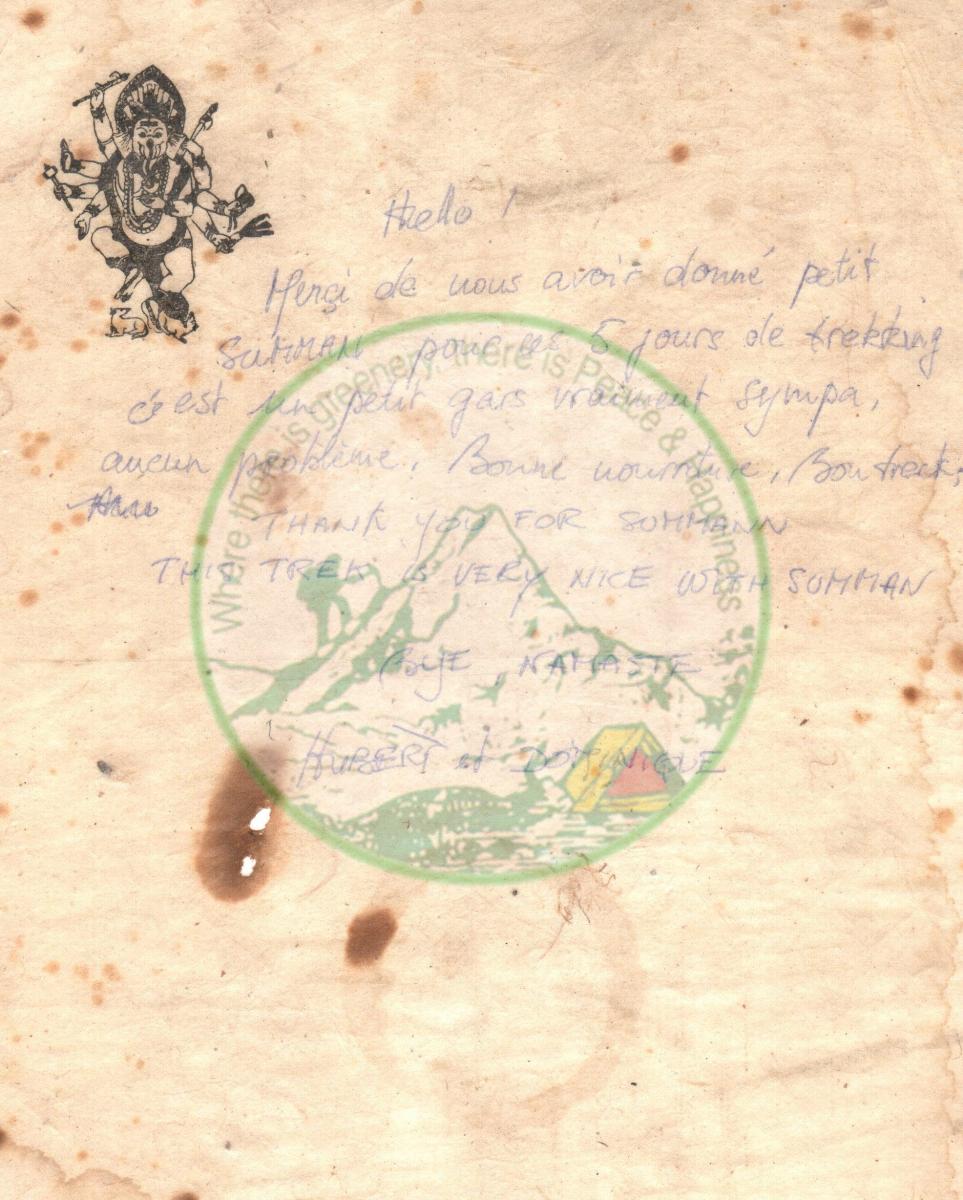 Hello !
Merçi de nous avoir donné petit
SUMMAN pour les 5 jours de trekking
c'est un petit gars vraiment sympa,
aucun problème. Bonne nourriture, Bon treck,
THANK YOU FOR SUMMANN
THIS TREK IS VERY NICE WITH SUMMAN
BYE, NAMASTE
HUBERT et DOMINIQUE
Where there is greenery, there is Peace & Happiness